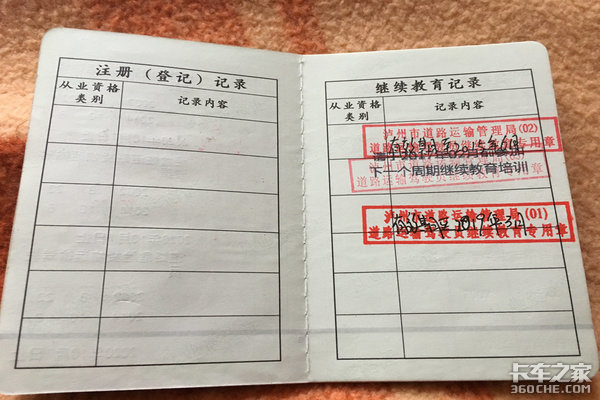 注册（登记）记录
从业资格
类别
记录内容
继续教育记录
从业资格
类别
记录内容
泸州市道路运输管理局(02)
下一个周期继续教育培训
道路运输驾驶员继续教育专用章
泸州市道路运输管理局(01)
有效期至 2019年3月
道路运输驾驶员继续教育专用章
卡车之家
360CHE.COM